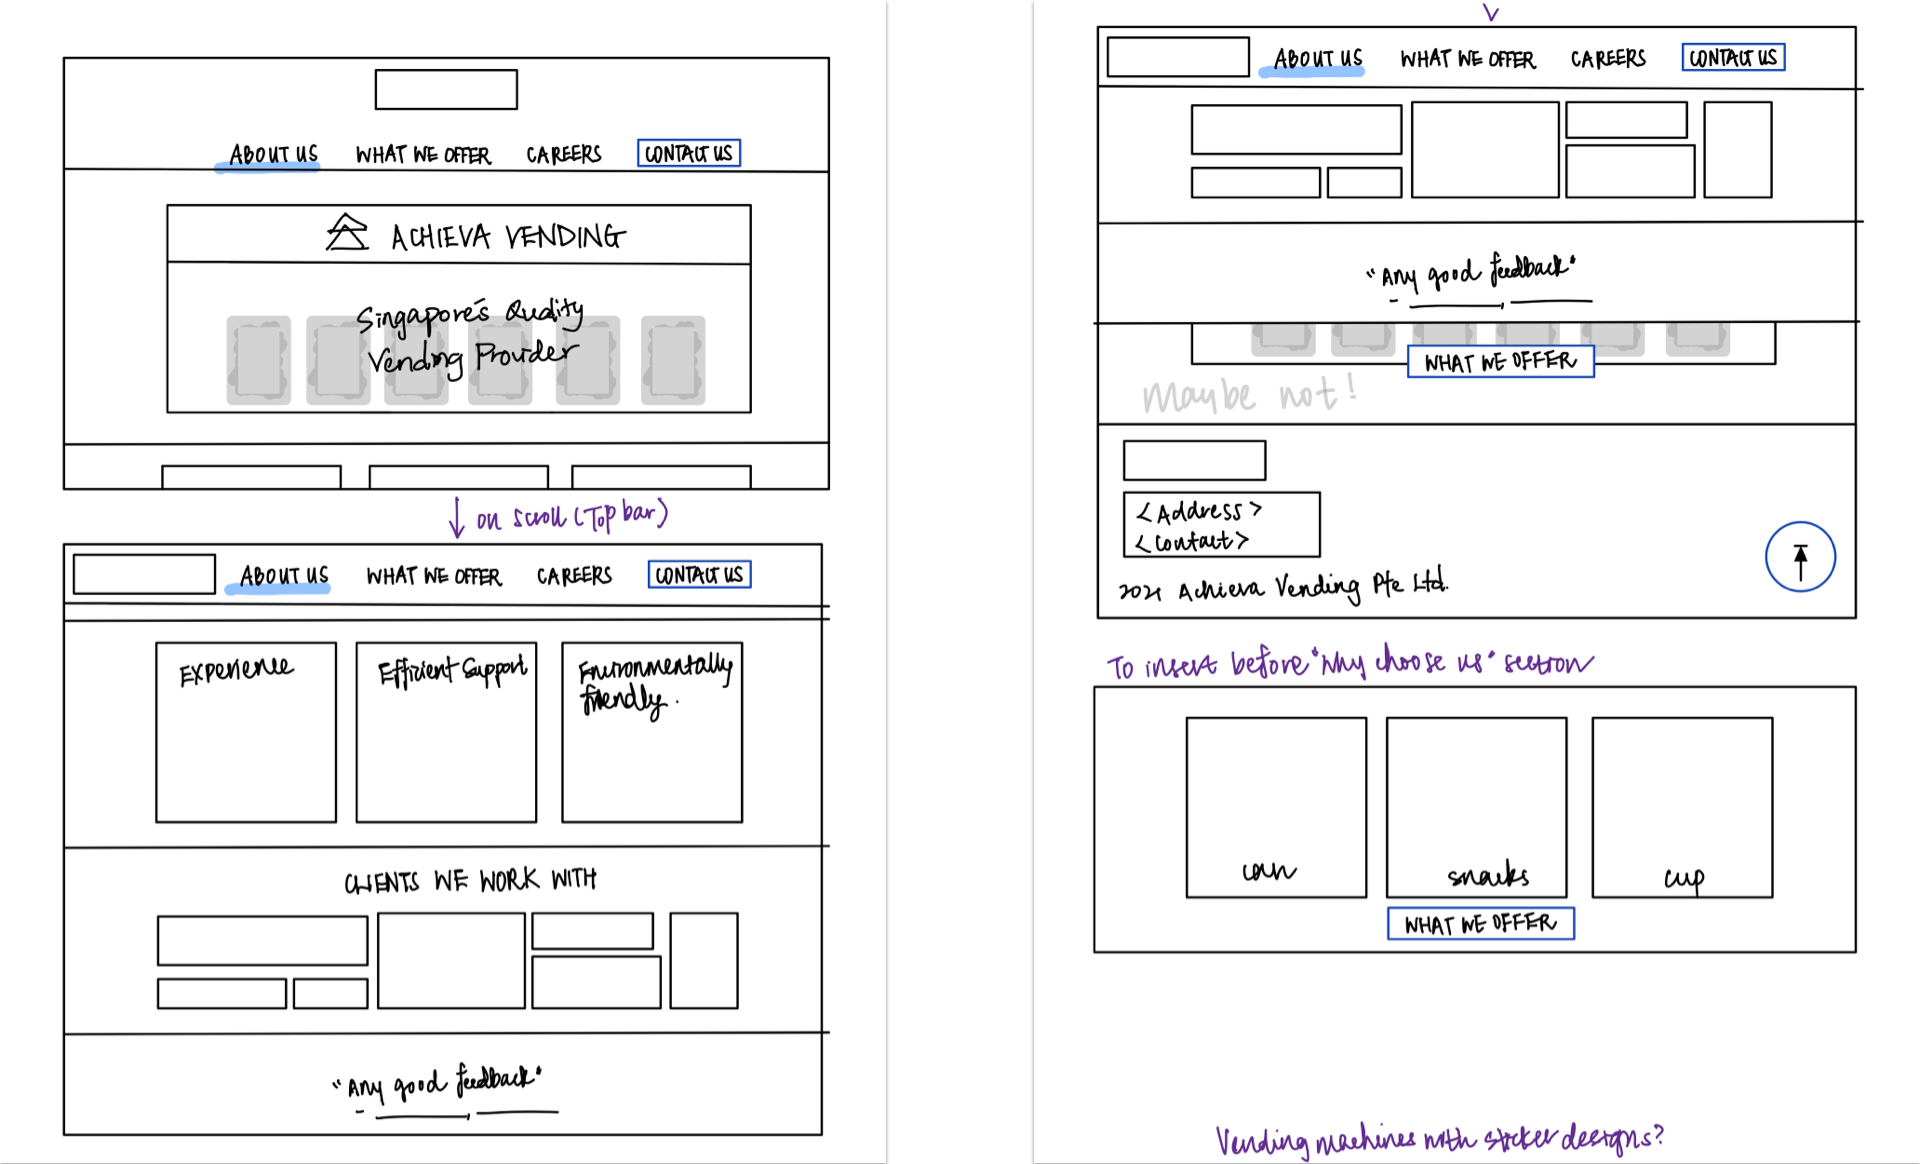 ABOUT US WHAT WE OFFER CAREERS CONTACT US
ACHIEVA VENDING
Singapore's Quality
Vending Provider
on scroll (Top bar)
ABOUT US WHAT WE OFFER CAREERS CONTACT US
Experience
Efficient Support
Environmentally
friendly.
CLIENTS WE WORK WITH
"Any good feedback"
ABOUT US WHAT WE OFFER CAREERS CONTACT US
"Any good feedback"
WHAT WE OFFER
Maybe not!
<Address>
<Contact>
2021 Achieva Vending Pte Ltd.
To insert before "Why choose us" section
can
snacks
cup
WHAT WE OFFER
Vending machines with sticker designs?